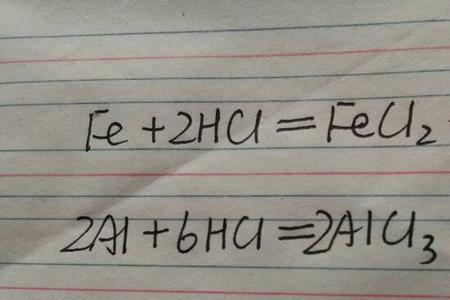 Fe+2HCl=FeCl₂
2Al+6HCl=2AlCl₃